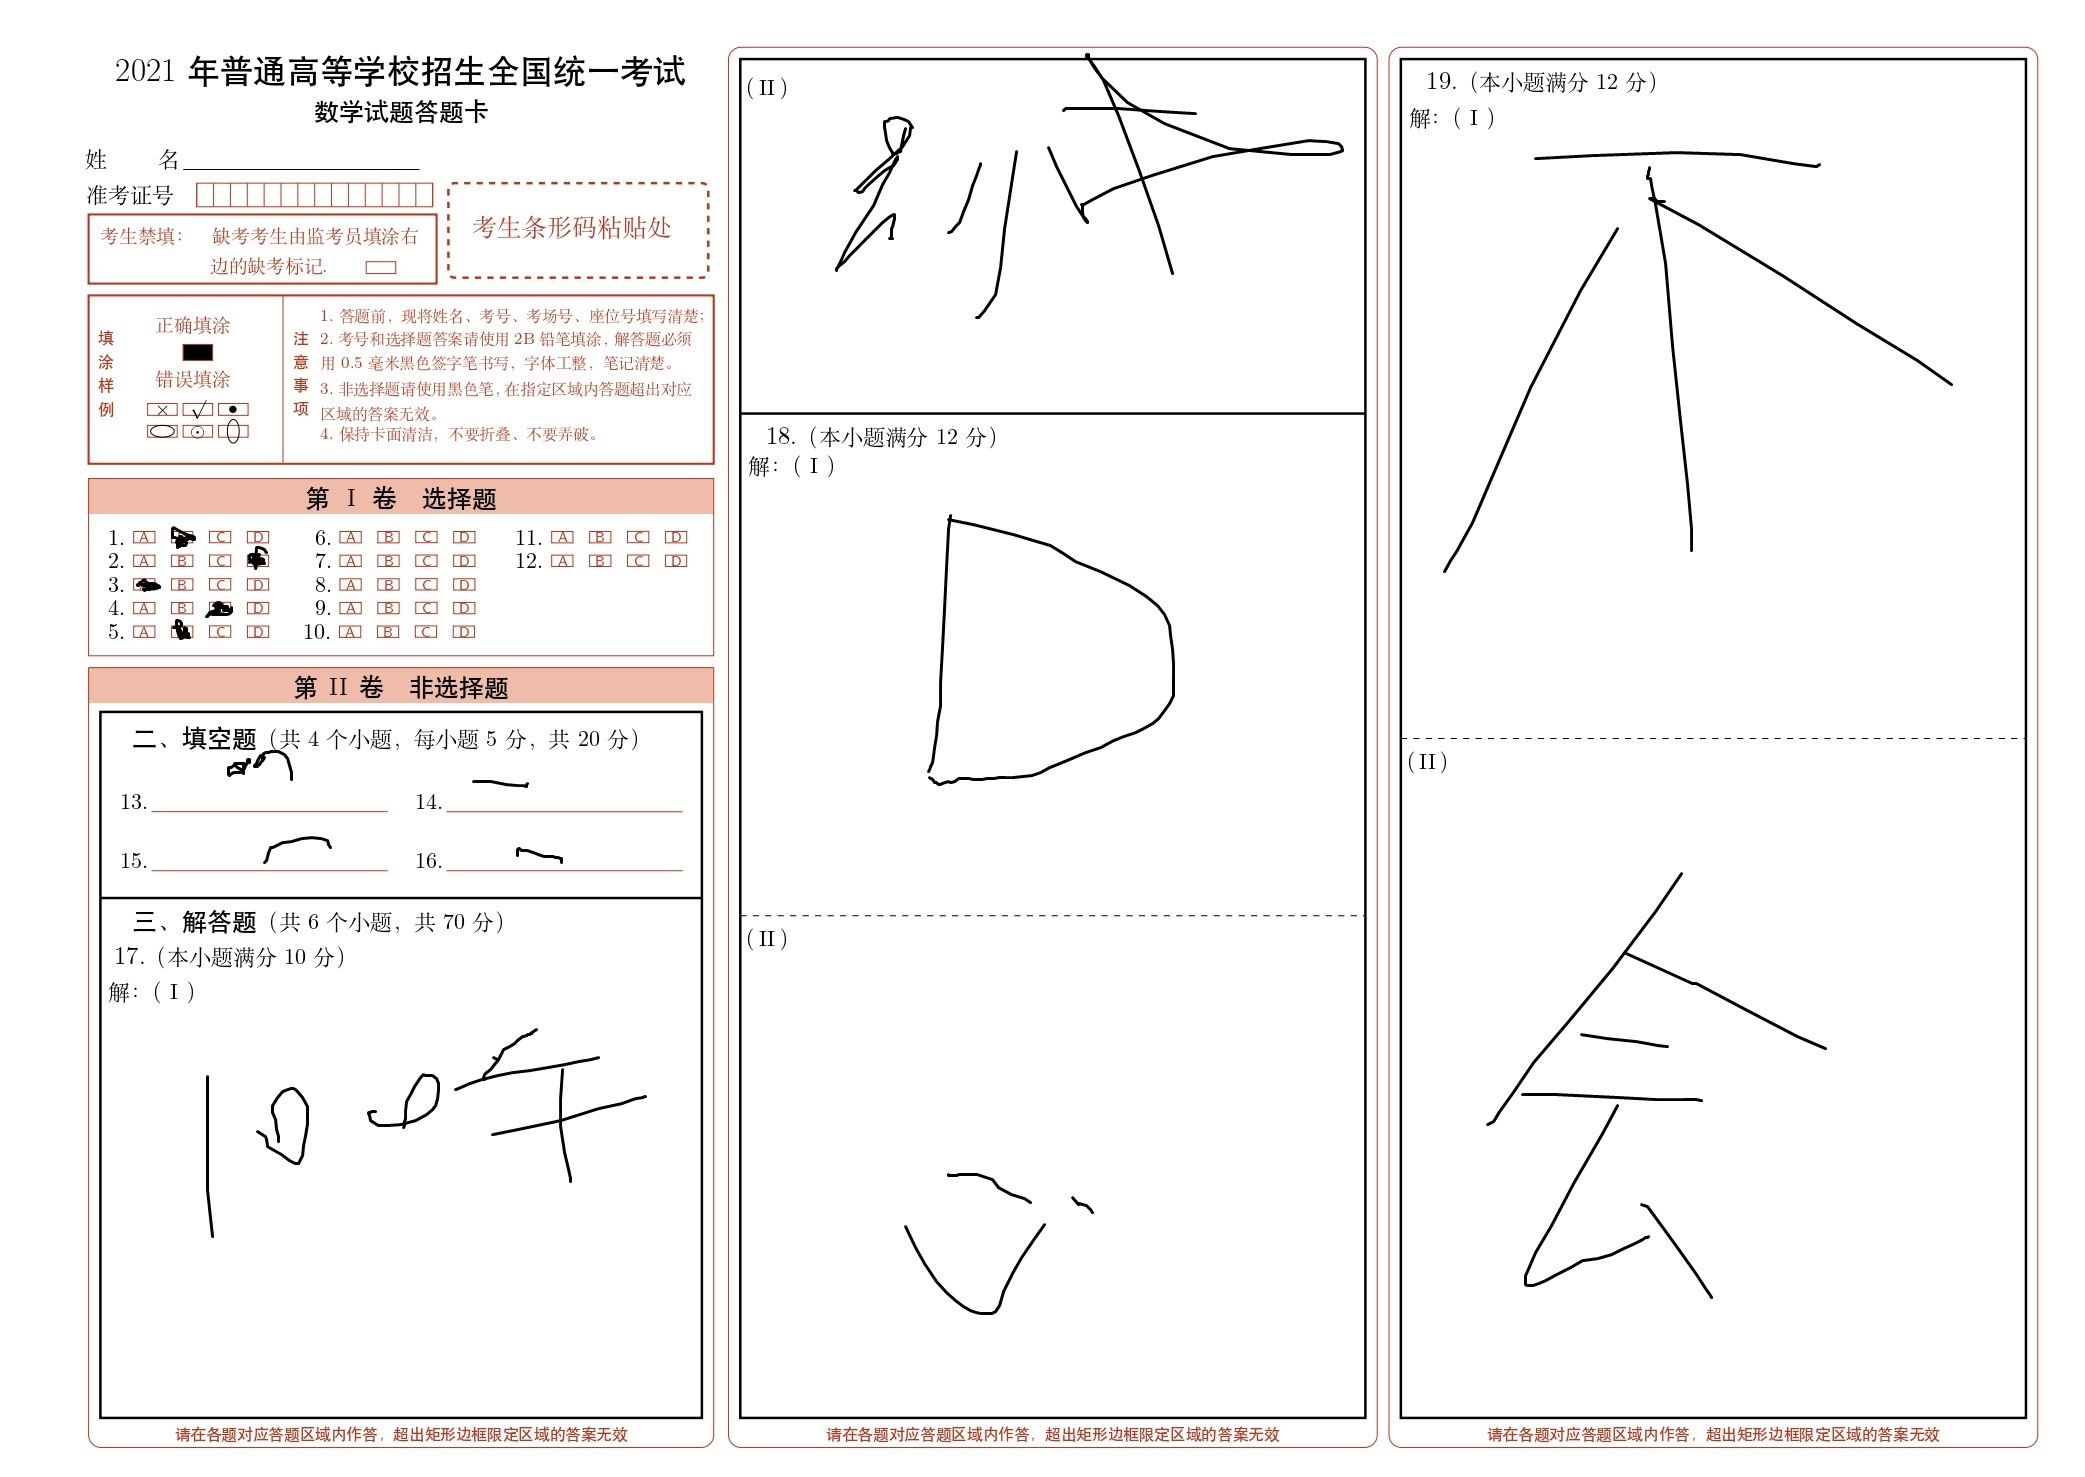 2021 年普通高等学校招生全国统一考试
数学试题答题卡
姓 名
准考证号
考生禁填： 缺考考生由监考员填涂右
边的缺考标记.
考生条形码粘贴处
填涂样例
正确填涂
错误填涂
注意事项
1. 答题前，现将姓名、考号、考场号、座位号填写清楚；
2. 考号和选择题答案请使用 2B 铅笔填涂，解答题必须
用 0.5 毫米黑色签字笔书写，字体工整，笔记清楚。
3. 非选择题请使用黑色笔，在指定区域内答题超出对应
区域的答案无效。
4. 保持卡面清洁，不要折叠、不要弄破。
第 I 卷 选择题
1. A C D 6. A B C D 11. A B C D
2. A B C 7. A B C D 12. A B C D
3. B C D 8. A B C D
4. A B D 9. A B C D
5. A C D 10. A B C D
第 II 卷 非选择题
二、填空题（共 4 个小题，每小题 5 分，共 20 分）
13. 14.
15. 16.
三、解答题（共 6 个小题，共 70 分）
17.（本小题满分 10 分）
解：（ I ）
请在各题对应答题区域内作答，超出矩形边框限定区域的答案无效
（II）
18.（本小题满分 12 分）
解：（ I ）
D
（II）
请在各题对应答题区域内作答，超出矩形边框限定区域的答案无效
19.（本小题满分 12 分）
解：（ I ）
不
（II）
会
请在各题对应答题区域内作答，超出矩形边框限定区域的答案无效